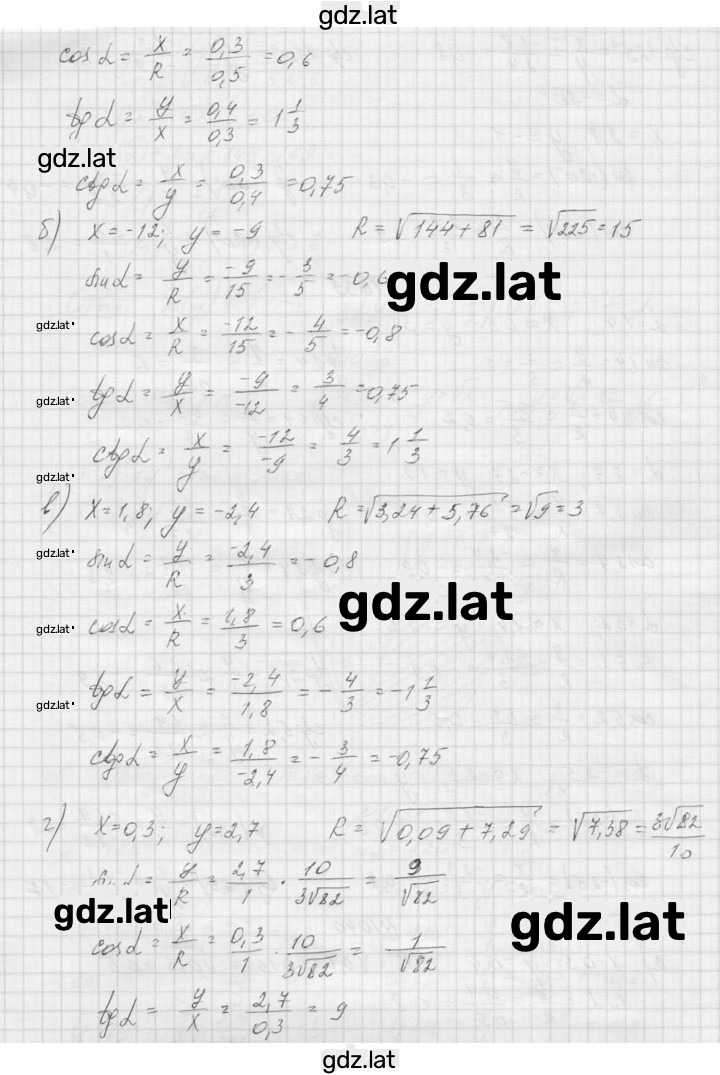 gdz.lat
cos α = x/R = 0,3/0,5 = 0,6
tg α = y/x = 0,4/0,3 = 1 1/3
gdz.lat
ctg α = x/y = 0,3/0,4 = 0,75
б) x = -12; y = -9 R = √(144 + 81) = √225 = 15
sin α = y/R = -9/15 = -3/5 = -0,6
gdz.lat
gdz.lat
cos α = x/R = -12/15 = -4/5 = -0,8
tg α = y/x = -9/-12 = 3/4 = 0,75
gdz.lat
ctg α = x/y = -12/-9 = 4/3 = 1 1/3
gdz.lat
в) x = 1,8; y = -2,4 R = √(3,24 + 5,76) = √9 = 3
gdz.lat
sin α = y/R = -2,4/3 = -0,8
gdz.lat
gdz.lat
cos α = x/R = 1,8/3 = 0,6
tg α = y/x = -2,4/1,8 = -4/3 = -1 1/3
gdz.lat
ctg α = x/y = 1,8/-2,4 = -3/4 = -0,75
г) x = 0,3; y = 2,7 R = √(0,09 + 7,29) = √7,38 = 3√82/10
= y/R = 2,7/1 · 10/3√82 = 9/√82
gdz.lat
gdz.lat
cos α = x/R = 0,3/1 · 10/3√82 = 1/√82
tg α = y/x = 2,7/0,3 = 9
gdz.lat